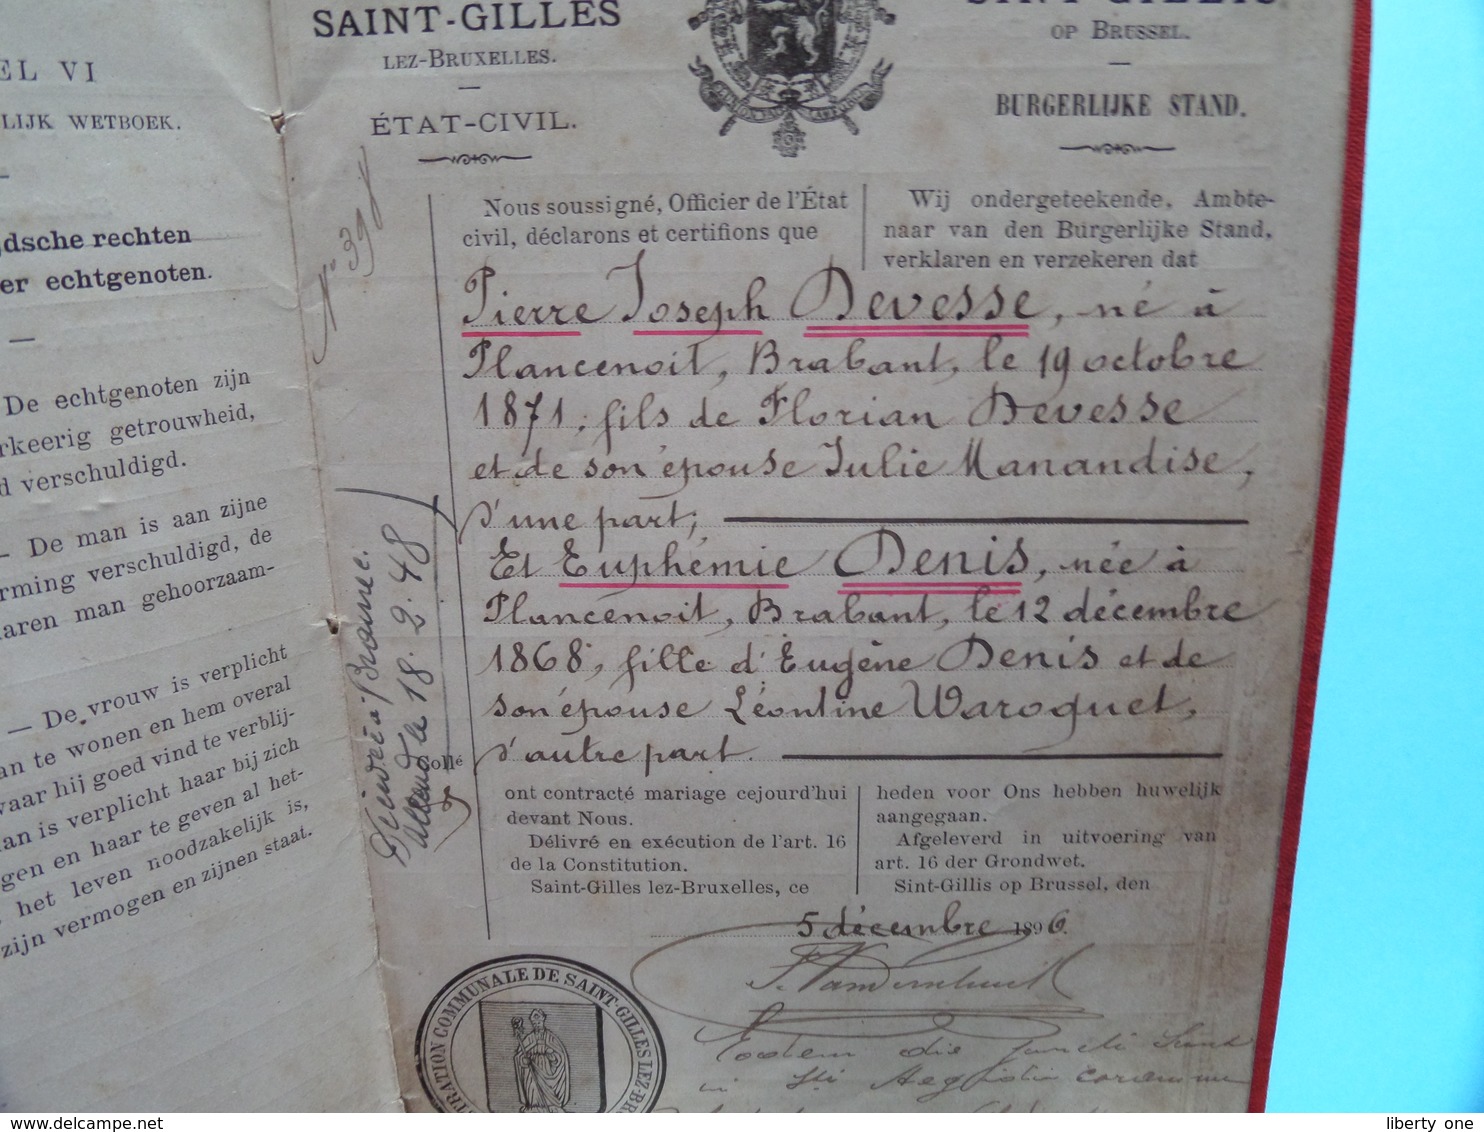 EL VI
LIJK WETBOEK.
dsche rechten
er echtgenoten.
De echtgenoten zijn
rkeerig getrouwheid,
d verschuldigd.
— De man is aan zijne
rming verschuldigd, de
aren man gehoorzaam-
— De vrouw is verplicht
an te wonen en hem overal
waar hij goed vind te verblij-
an is verplicht haar bij zich
gen en haar te geven al het-
het leven noodzakelijk is,
zijn vermogen en zijnen staat.
SAINT-GILLES
LEZ-BRUXELLES.
ÉTAT-CIVIL.
SINT-GILLIS
OP BRUSSEL.
BURGERLIJKE STAND.
Nous soussigné, Officier de l'État
civil, déclarons et certifions que
Wij ondergeteekende, Ambte-
naar van den Burgerlijke Stand,
verklaren en verzekeren dat
Pierre Joseph Devesse, né à
Plancenoit, Brabant, le 19 octobre
1871, fils de Florian Devesse
et de son épouse Julie Manandise,
d'une part;
Et Euphémie Denis, née à
Plancenoit, Brabant, le 12 décembre
1868, fille d'Eugène Denis et de
son épouse Léontine Waroquet,
d'autre part.
ont contracté mariage cejourd'hui
devant Nous.
Délivré en exécution de l'art. 16
de la Constitution.
Saint-Gilles lez-Bruxelles, ce
heden voor Ons hebben huwelijk
aangegaan.
Afgeleverd in uitvoering van
art. 16 der Grondwet.
Sint-Gillis op Brussel, den
5 décembre 1896.
Nº 398
le 18.2.48
TRATION COMMUNALE DE SAINT-GILLES LEZ-BR
Eodem die juncti sunt
in
liberty one